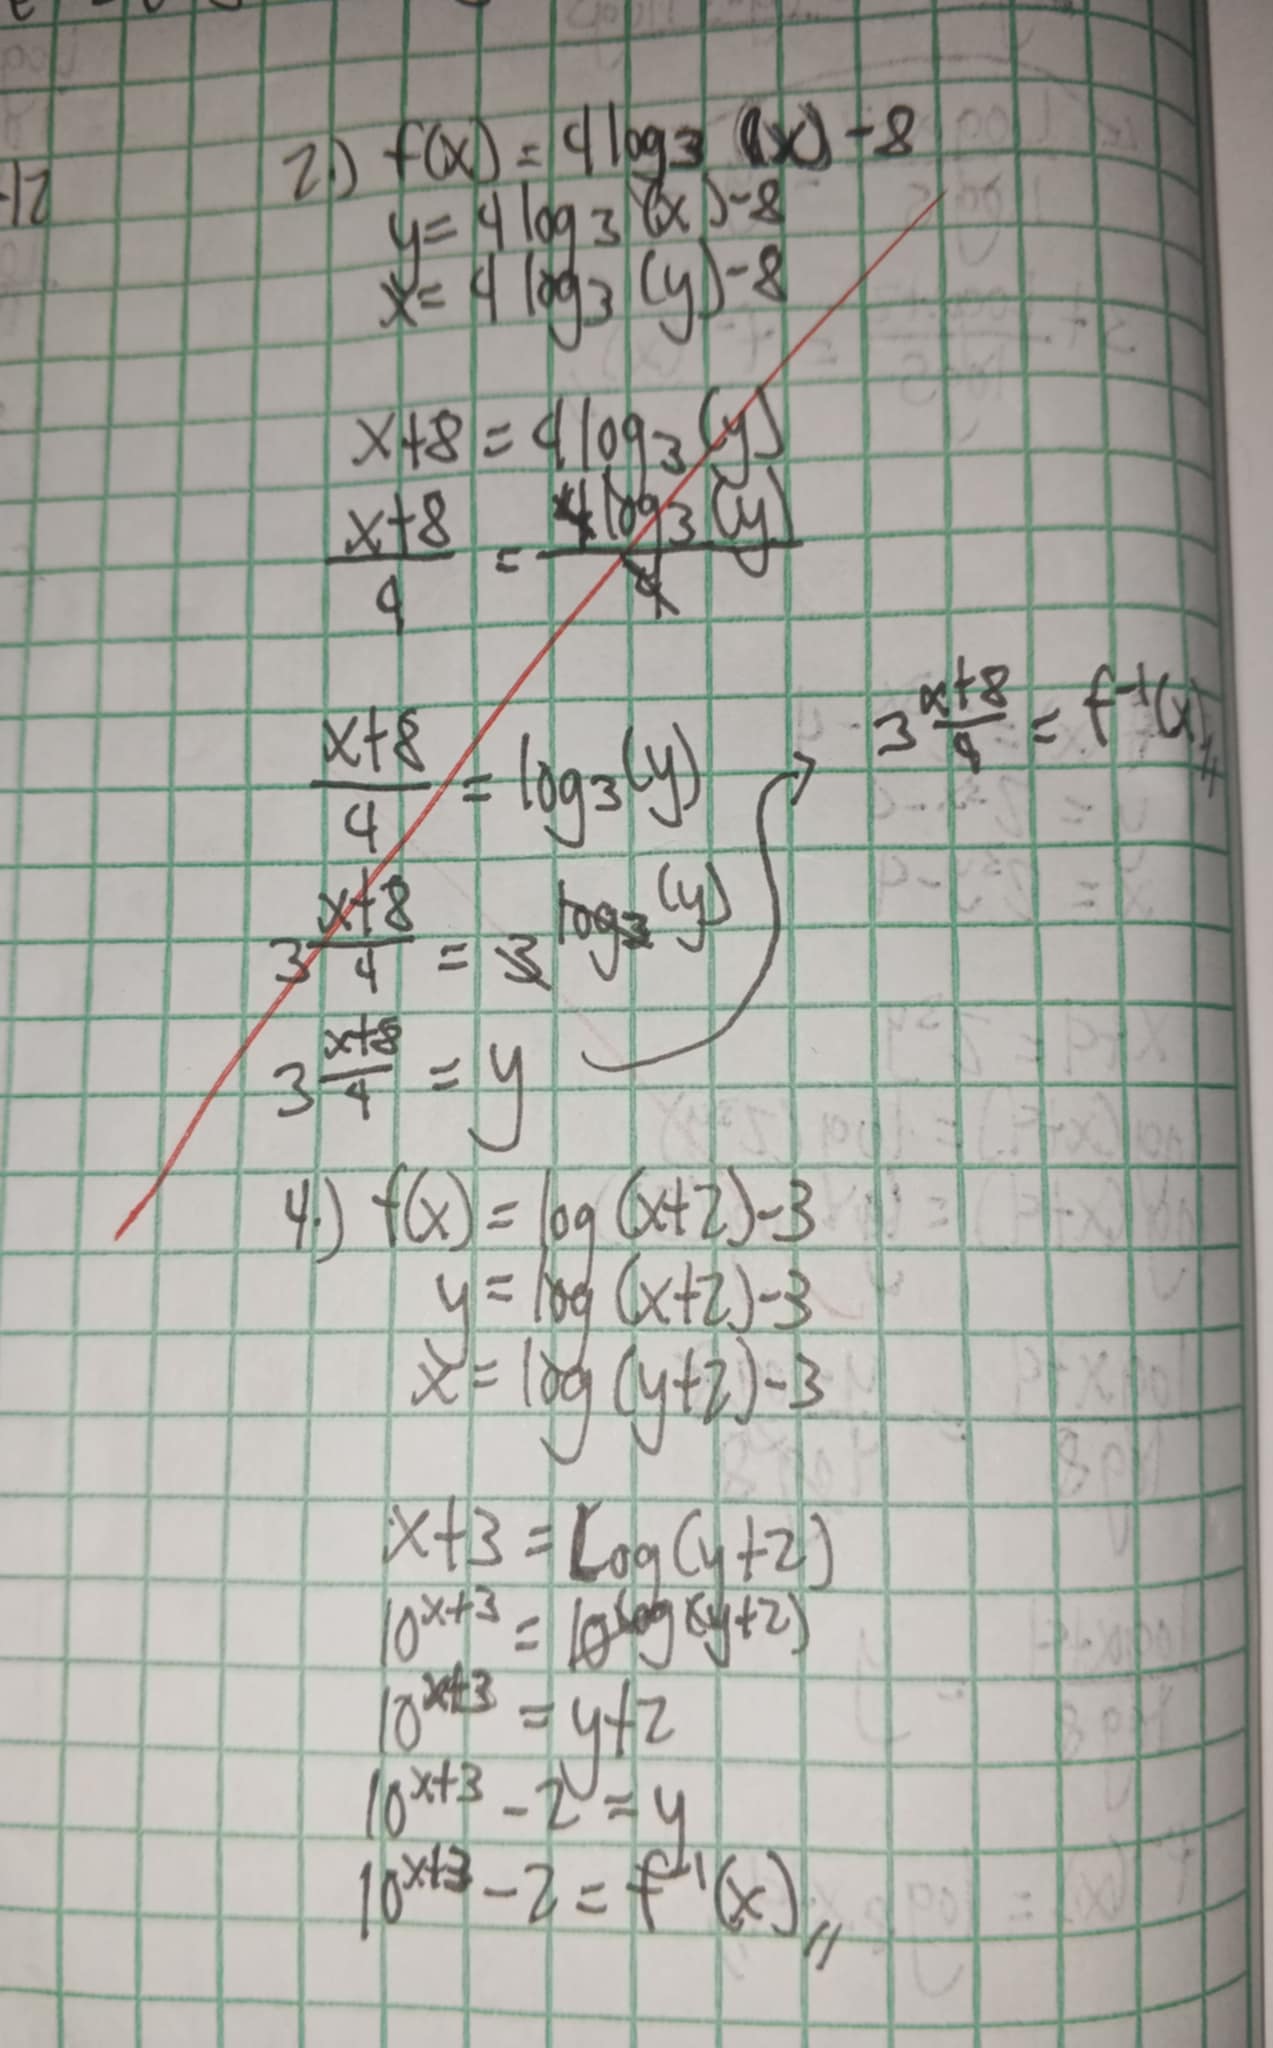 -12
2.) f(x) = 4 log₃ (x) - 8
y = 4 log₃ (x) - 8
x = 4 log₃ (y) - 8
x+8 = 4 log₃ (y)
(x+8)/4 = 4 log₃ (y)/4
(x+8)/4 = log₃ (y)
3^((x+8)/4) = 3^(log₃ (y))
3^((x+8)/4) = y
3^((x+8)/4) = f⁻¹(x)
4.) f(x) = log (x+2) - 3
y = log (x+2) - 3
x = log (y+2) - 3
x+3 = Log (y+2)
10^(x+3) = 10^(log (y+2))
10^(x+3) = y+2
10^(x+3) - 2 = y
10^(x+3) - 2 = f⁻¹(x)